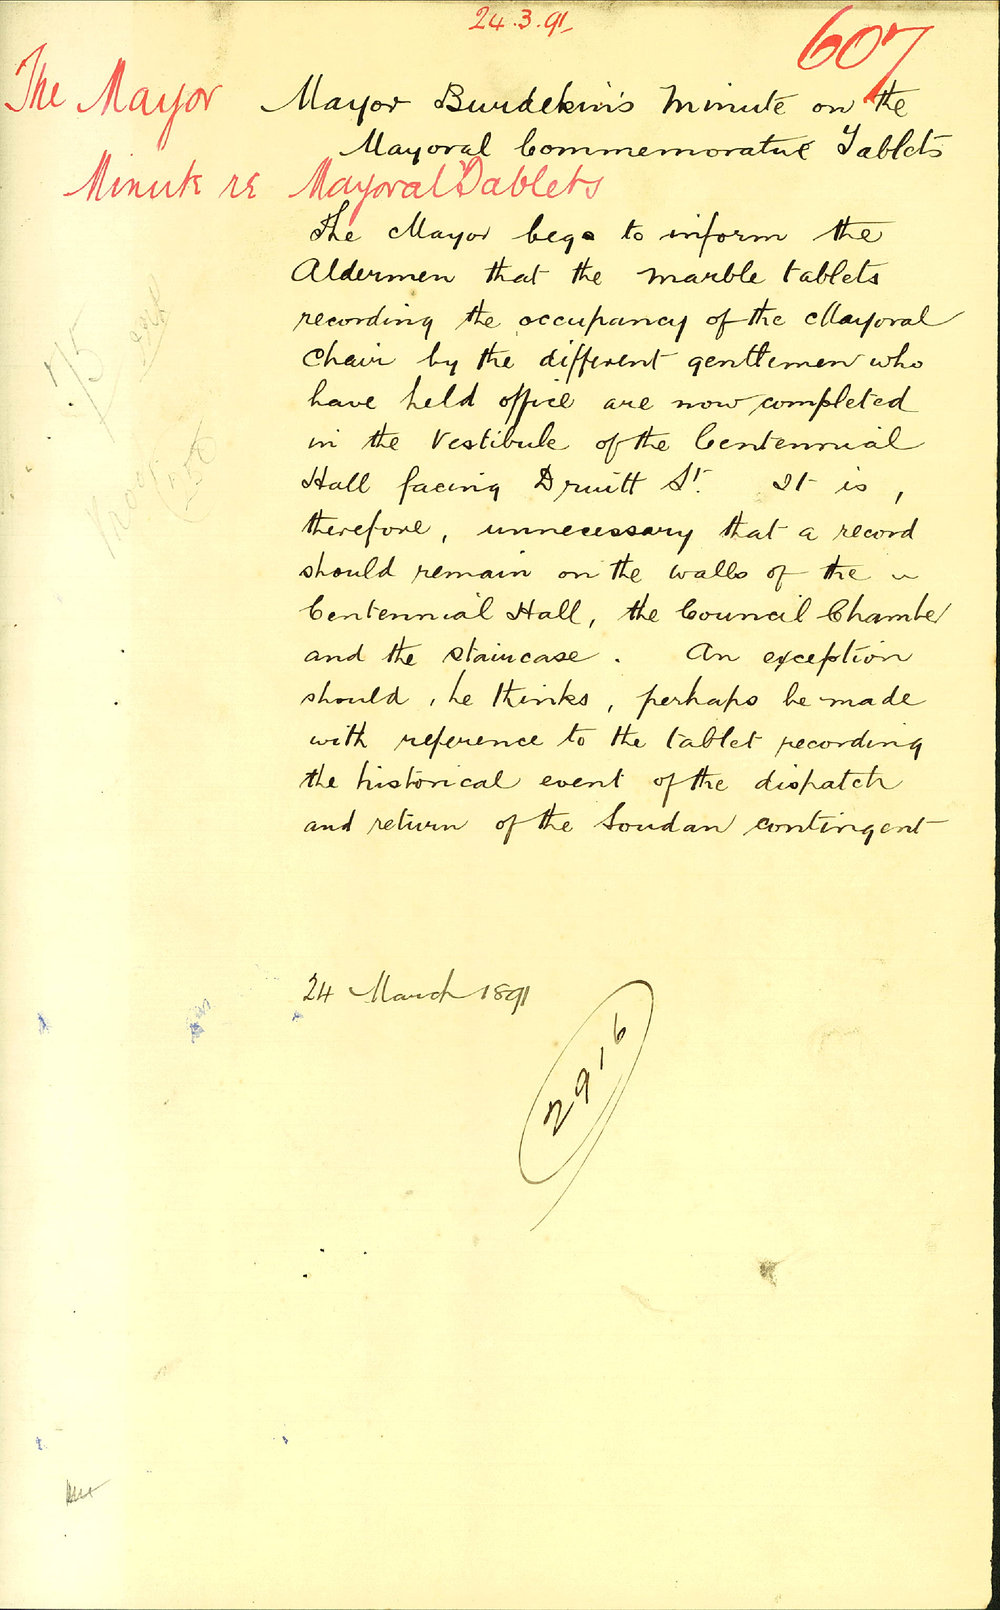 24.3.91
607
The Mayor
Mayor Burdekin's Minute on the
Mayoral Commemorative Tablets
Minute re Mayoral Tablets
The Mayor begs to inform the
Aldermen that the marble tablets
recording the occupancy of the Mayoral
Chair by the different gentlemen who
have held office are now completed
in the Vestibule of the Centennial
Hall facing Druitt St. It is,
therefore, unnecessary that a record
should remain on the walls of the
Centennial Hall, the Council Chamber
and the staircase. An exception
should, he thinks, perhaps be made
with reference to the tablet recording
the historical event of the dispatch
and return of the Soudan contingent
24 March 1891
29.16